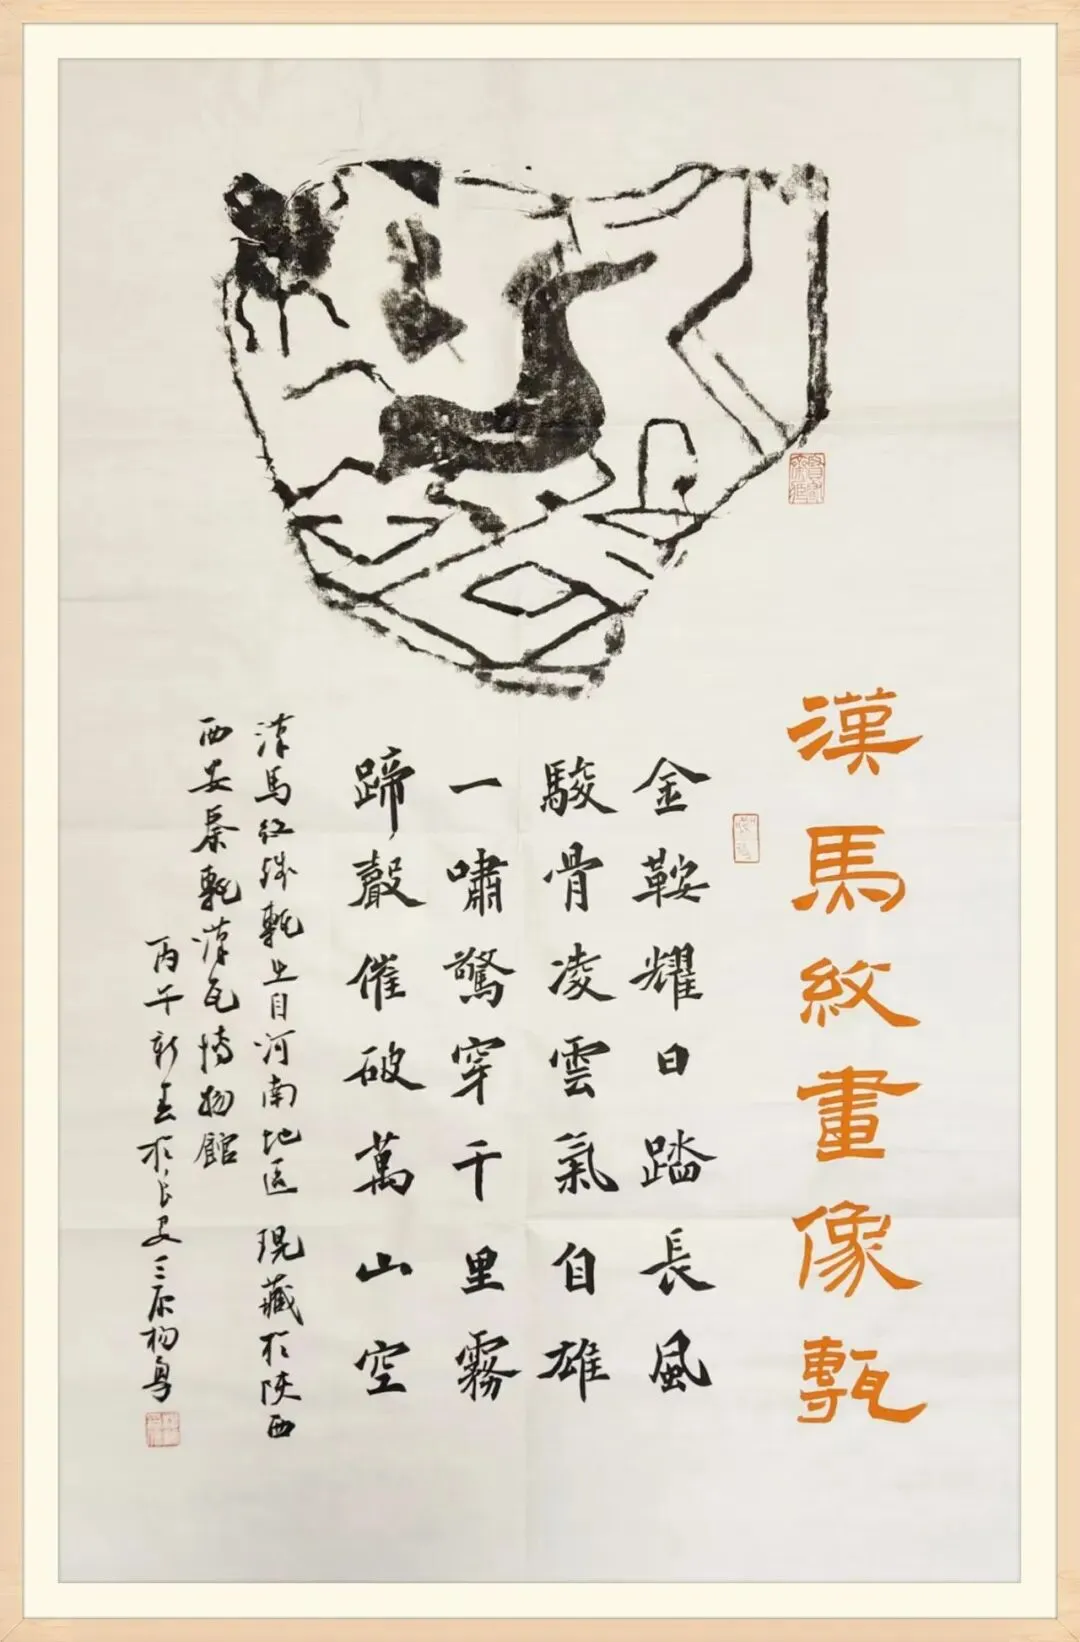 漢馬紋畫像甎
金鞍耀日踏長風
駿骨凌雲氣自雄
一嘯驚穿千里霧
蹄聲催破萬山空
漢馬紅線甎出自河南地區現藏於陝西
西安秦甎漢瓦博物館
丙午新春於長安三原楊